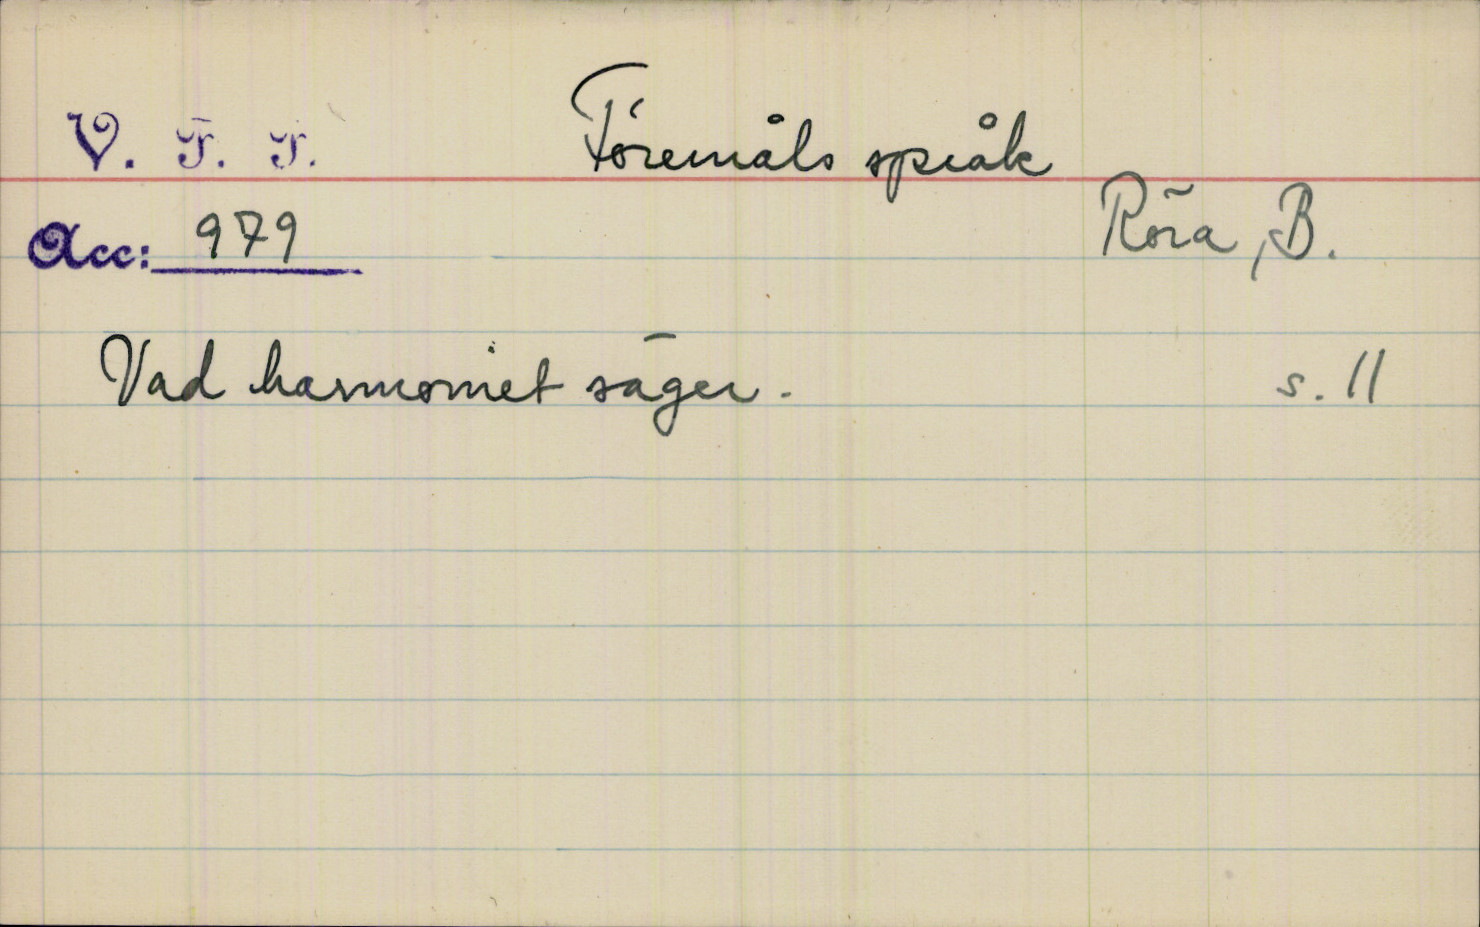 V. F. F. Föremåls språk
Acc: 979 Röra, B.
Vad harmoniet säger. s. 11